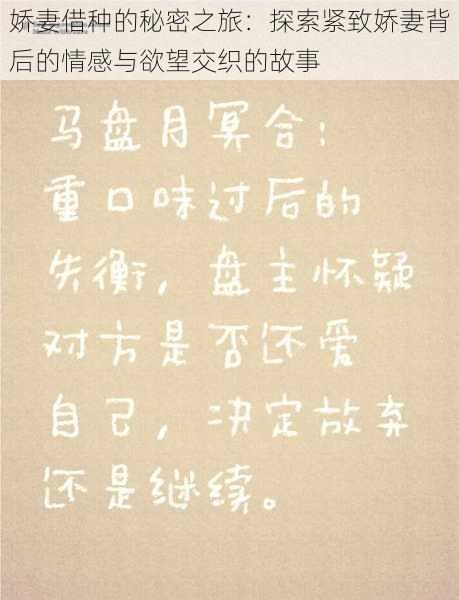 娇妻借种的秘密之旅：探索紧致娇妻背
后的情感与欲望交织的故事
马盘月冥合；
重口味过后的
失衡，盘主怀疑
对方是否还爱
自己，决定放弃
还是继续。